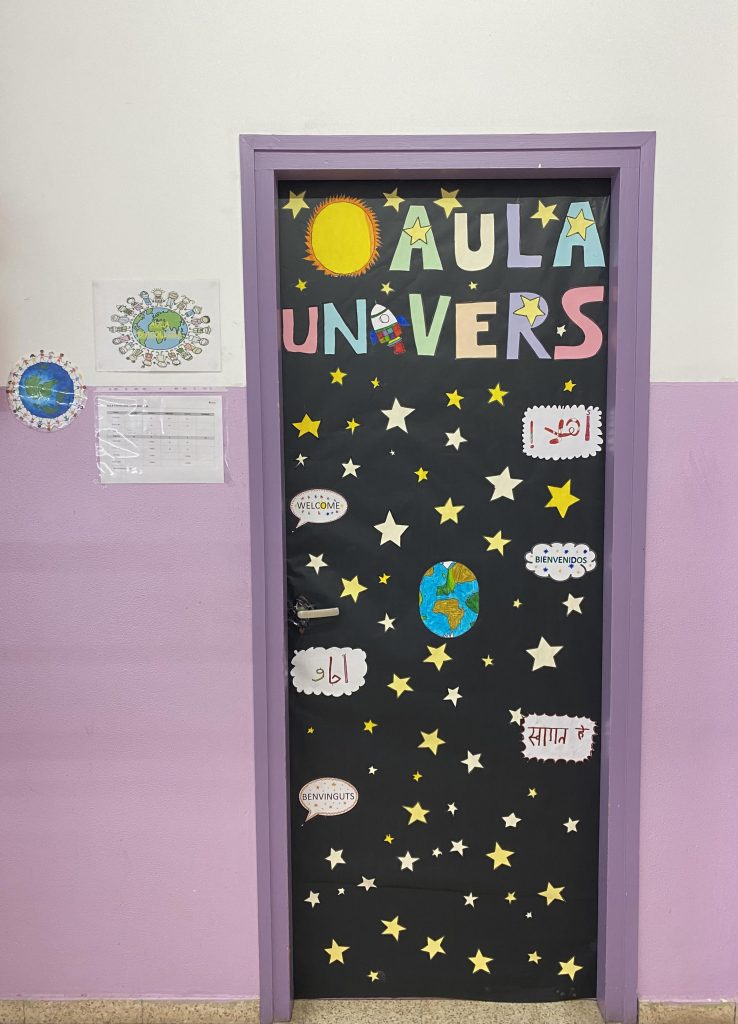 AULA
UNIVERS
اهلا !
WELCOME
BIENVENIDOS
اجاو
स्वागत हे
BENVINGUTS